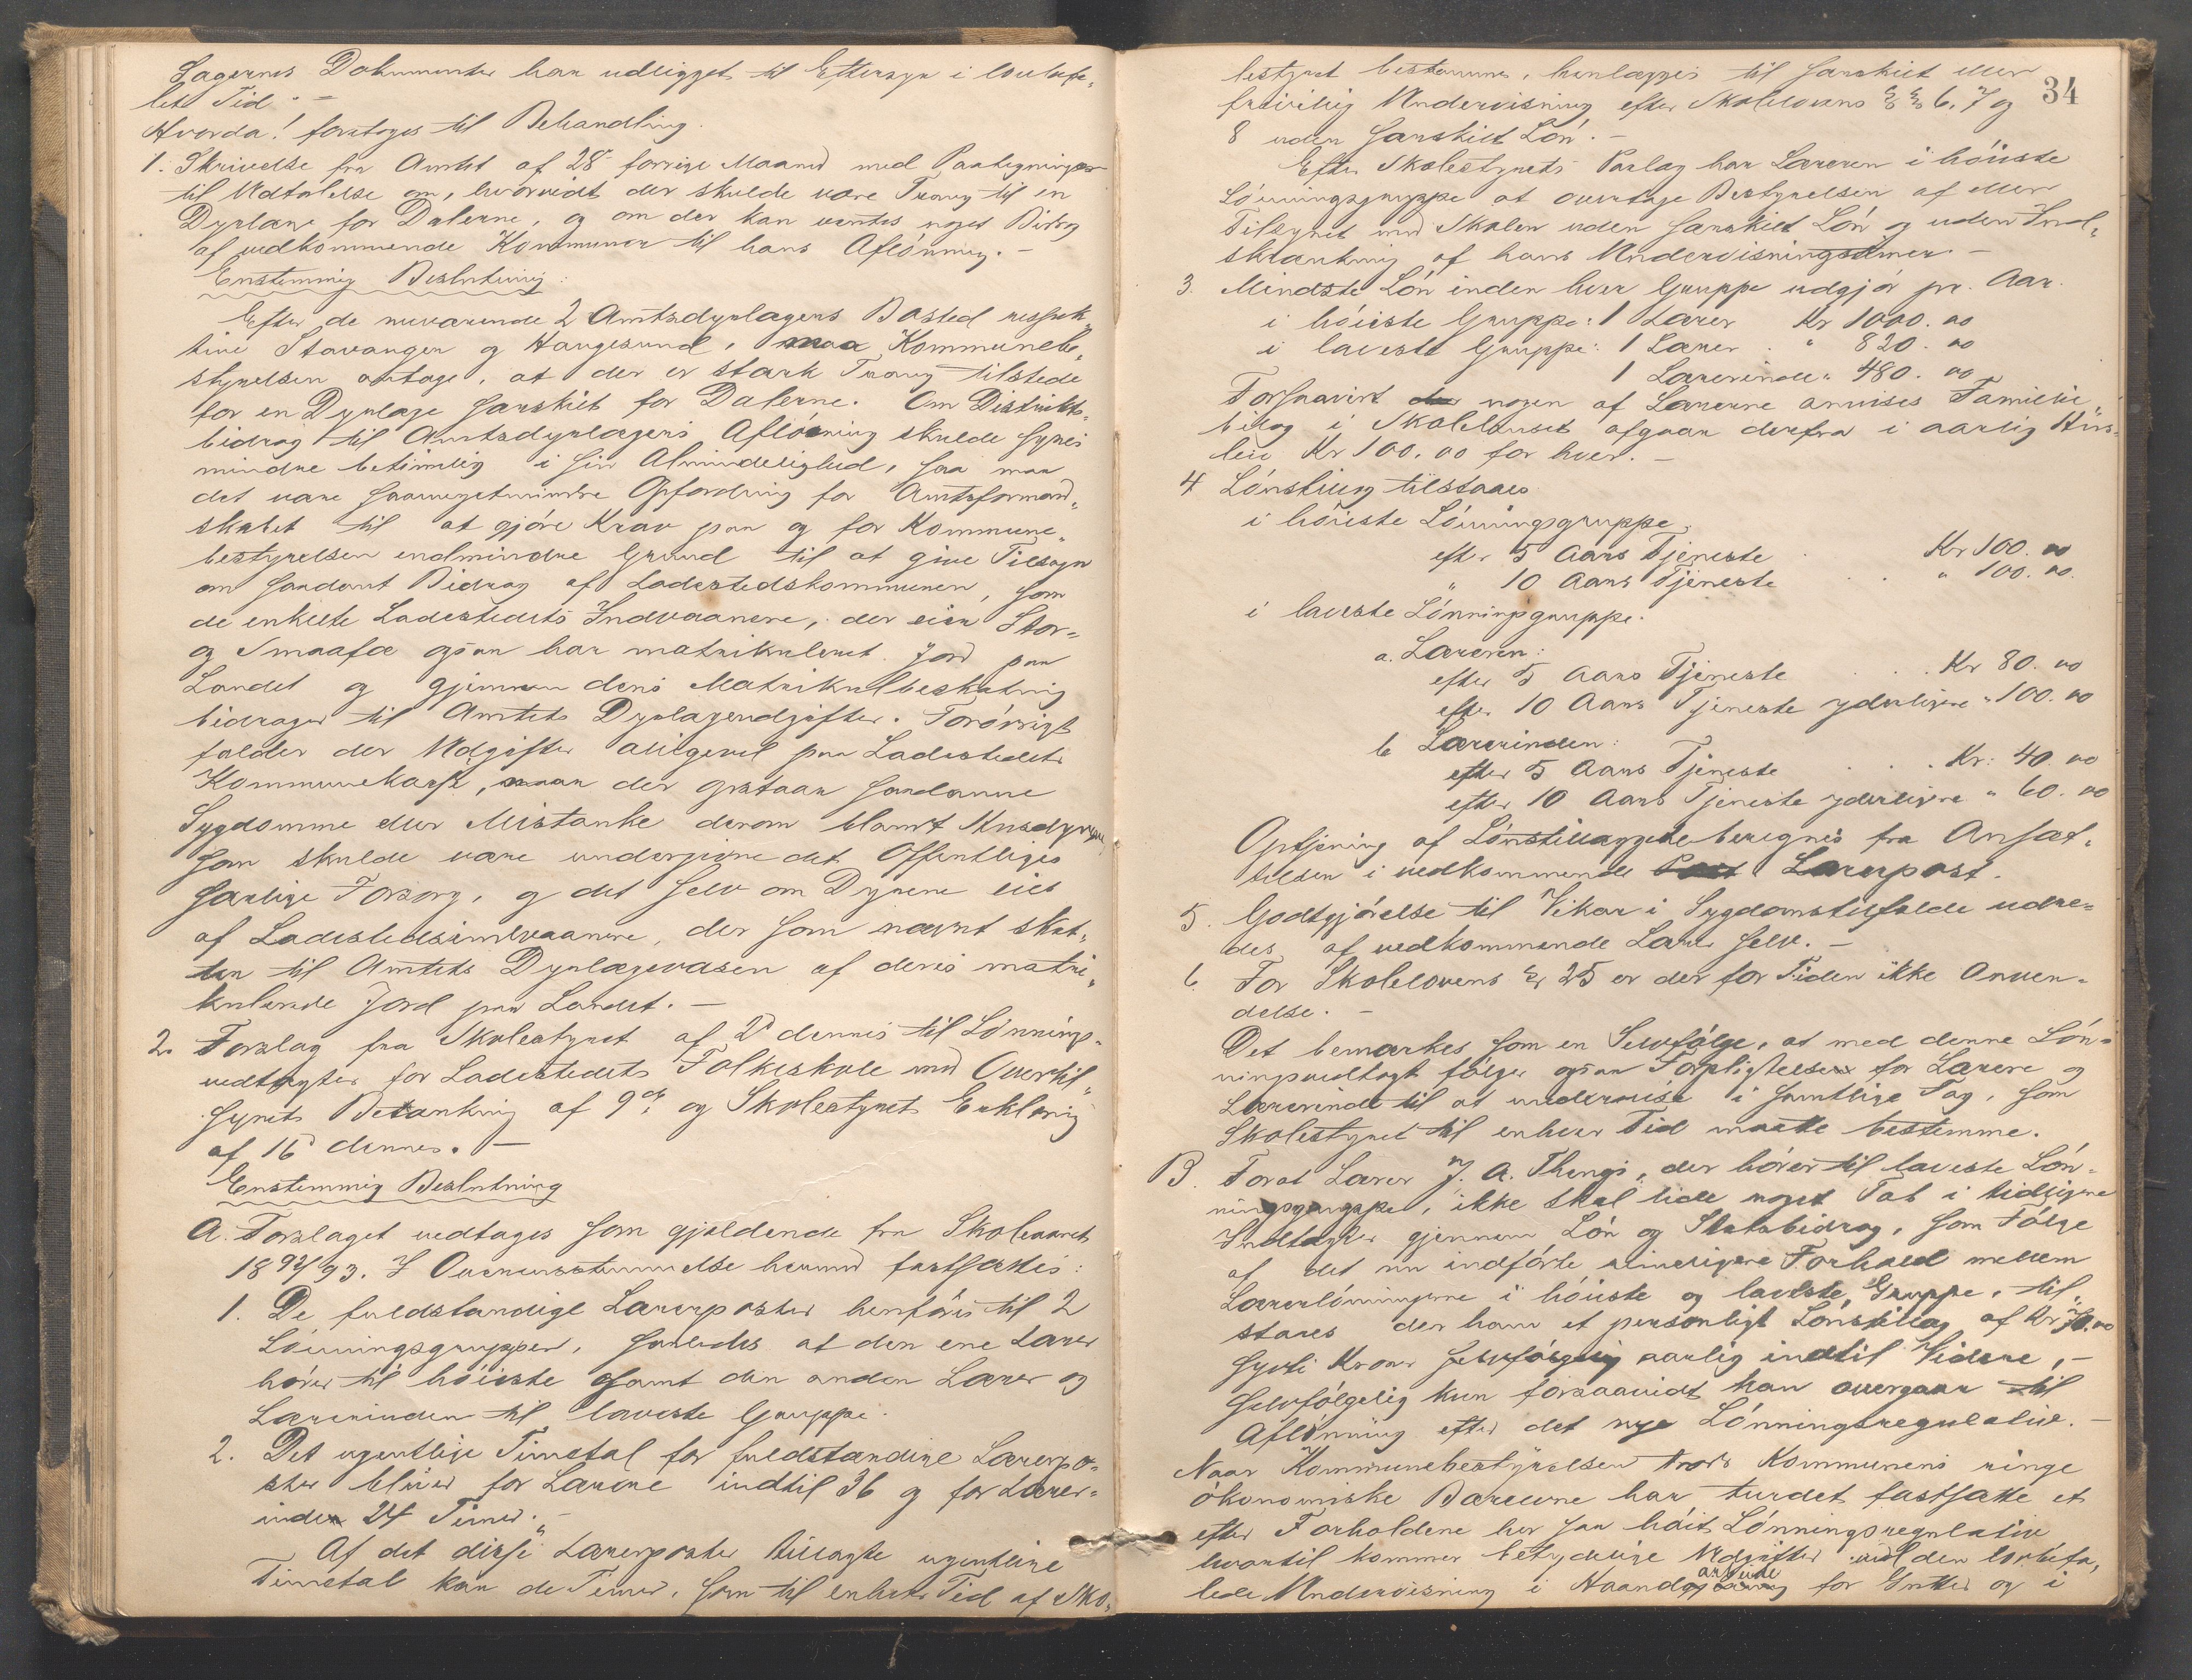 Sagernes Dokumenter har udligget til Eftersyn i lovbefa„
let Tid. –
Hvorda! foretoges til Behandling.
1. Skrivelse fra Amtet af 28 forrige Maaned med Paategninger
til Udtalelse om, hvorvidt der skulde være Trang til en
Dyrlæge for Dalerne, og om der kan ventes noget Bidrag
af vedkommende Kommuner til hans Aflönning. –
Enstemmig Beslutning:
Efter de nuværende 2 Amtsdyrlægers Bosted respek„
tive Stavanger og Haugesund, maa Kommunebe„
styrelsen antage, at der er stærk Trang tilstede
for en Dyrlæge særskilt for Dalerne. Om Distrikts„
bidrag til Amtsdyrlægens Aflönning skulde synes
mindre betimelig i sin Almindelighed, saa maa
det være saameget mindre Opfordring for Amtsformand„
skabet til at gjöre Krav paa og for Kommune„
bestyrelsen endmindre Grund til at give Tilsagn
om saadant Bidrag af Ladestedskommunen, som
de enkelte Ladestedets Indvaanere, der eier Stor-
og Smaafæ ogsaa har matrikuleret Jord paa
Landet og gjennem dens Matrikulbeskatning
bidrager til Amtets Dyrlægeudgifter. Forövrigt
falder der Udgifter alligevel paa Ladestedets
Kommunekasse, naar der opstaar saadanne
Sygdomme eller Mistanke derom blandt Husdyrene,
som skulde være undergivne det Offentliges
særlige Forsorg, og det selv om Dyrene eies
af Ladestedsindvaanere, der som nævnt skat„
ter til Amtets Dyrlægevæsen af deres matri„
kulerede Jord paa Landet. –
2. Forslag fra Skolestyret af 2 dennes til Lönnings-
vedtægter for Ladestedets Folkeskole med Overtil„
synets Betænkning af 9de og Skolestyrets Erklæring
af 16 dennes. –
Enstemmig Beslutning
A. Forslaget vedtages som gjældende fra Skoleaaret
1892/93. I Overensstemmelse hermed fastsættes:
1. De fuldstændige Lærerposter henföres til 2
Lönningsgrupper, saaledes at den ene Lærer
hörer til höieste samt den anden Lærer og
Lærerinden til laveste Gruppe.
2. Det ugentlige Timetal for fuldstændige Lærerpo„
ster bliver for Lærere indtil 36 og for Lærer-
inden 24 Timer. –
Af det disse Lærerposter tillagte ugentlige
Timetal kan de Timer, som til enhver Tid af Sko„
34
lestyret bestemmes, henlægges til særskilt eller
frivillig Undervisning efter Skolelovens §§ 6, 7 og
8 uden særskilt Lön. –
Efter Skolestyrets Paalæg har Læreren i höieste
Lönningsgruppe at overtage Bestyrelsen af eller
Tilsynet med Skolen uden særskilt Lön og uden Ind„
skrænkning af hans Undervisningstimer –
3. Mindste Lön inden hver Gruppe udgjör pr. Aar.
i höieste Gruppe: 1 Lærer Kr 1000. 00
i laveste Gruppe: 1 Lærer. „ 820. 00
1 Lærerinde „ 480. 00
Forsaavidt nogen af Lærerne anvises Familie„
bolig i Skolehuset afgaar derfra i aarlig Hus„
leie Kr 100. 00 for hver. –
4 Lönstillæg tilstaaes
i höieste Lönningsgruppe,
efter 5 Aars Tjeneste . Kr 100. 00
„ 10 Aars Tjeneste . . „ 100. 00.
i laveste Lönningsgruppe.
a. Læreren:
efter 5 Aars Tjeneste . . Kr 80. 00
efter 10 Aars Tjeneste yderligere „ 100. 00
b Lærerinden:
efter 5 Aars Tjeneste . . . Kr: 40. 00
efter 10 Aars Tjeneste yderligere „ 60. 00
Optjening af Lönstillæggene beregnes fra Ansæt„
telsen i vedkommende Lærerpost.
5. Godtgjörelse til Vikar i Sygdomstilfælde udre-
des af vedkommende Lærer selv. –
6. For Skolelovens § 25 er der for Tiden ikke Anven-
delse. –
Det bemærkes som en Selvfölge, at med denne Lön-
ningsvedtægt fölger ogsaa Forpligtelsen for Lærere og
Lærerinde til at undervise i samtlige Fag, som
Skolestyret til enhver Tid maatte bestemme.
B. Forat Lærer J. A. Thengs, der hörer til laveste Lön-
ningsgruppe, ikke skal lide noget Tab i tidligere
Indtægter gjennem Lön og Statsbidrag, som Fölge
af det nu indförte rimeligere Forhold mellem
Lærerlönningerne i höieste og laveste Gruppe, til„
staaes der ham et personligt Lönstillæg af Kr 70. 00
sytti Kroner aarlig indtil Videre, –
selvfölgelig kun forsaavidt han overgaar til
Aflönning efter det nye Lönningsregulativ. –
Naar Kommunebestyrelsen trods Kommunens ringe
ökonomiske Bæreevne har turdet fastsætte et
efter Forholdene her saa höit Lönningsregulativ
hvortil kommer betydelige Udgifter ved den lovbefa„
lede Undervisning i Haandarbeide for Gutter og i